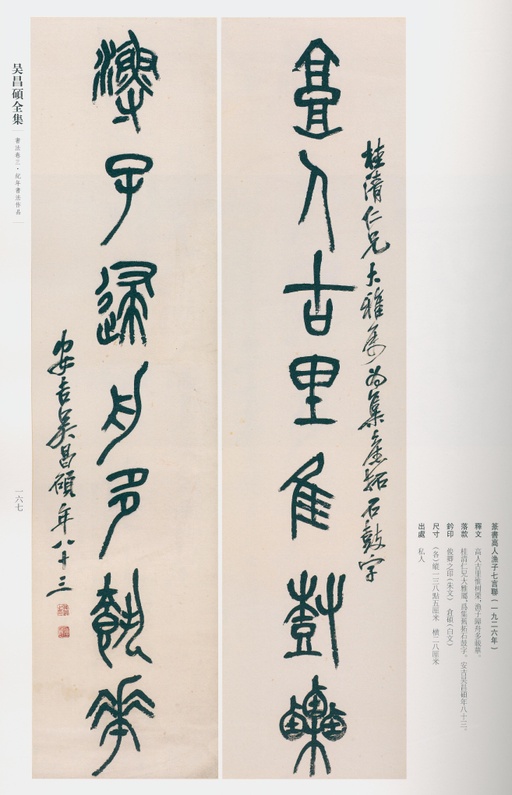 篆書高人漁子七言聯（一九二六年）
釋文　高人古里隹樹栗，漁子歸舟多執華。
落款　桂清仁兄大雅屬，為集舊拓石鼓字。安吉吳昌碩年八十三。
鈐印　俊卿之印（朱文）　倉碩（白文）
尺寸　（各）縱一三八點五厘米　橫二八厘米
出處　私人
桂清仁兄大雅屬為集舊拓石鼓字
高人古里隹尌栗
漁子歸舟多執華
安吉吳昌碩年八十三
吴昌碩全集
書法卷三·紀年書法作品
一六七